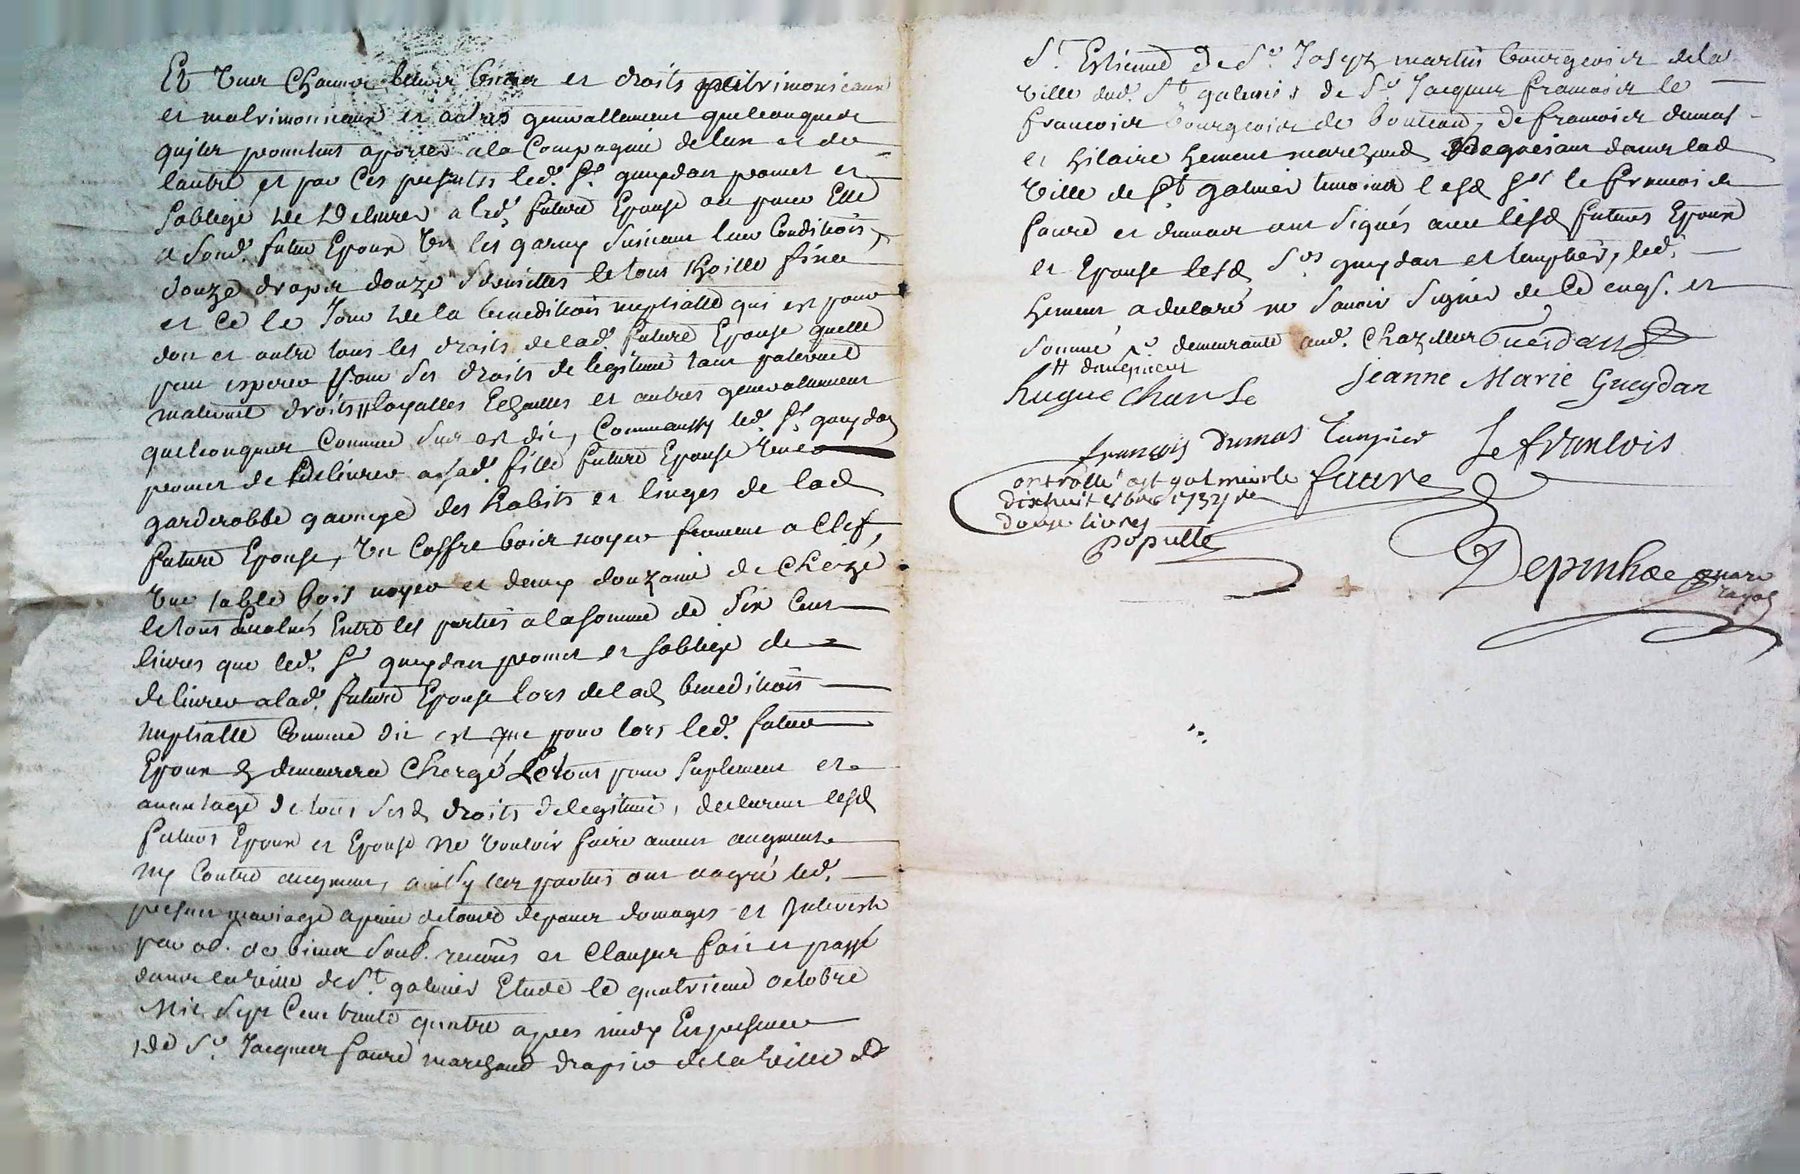 Et Un Chacuns leurs biens et droits patrimoniaux
et matrimoniaux et autres generallement quelconques
qu'ils promettent aporter a la Compagnie de lun et de
lautre et par Ces presentes led. Sr gueydan promet et
soblige de Delivrer a lad. future Epouse ou pour Elle
a sond. futur Epoux Un lit garny suivant leur Condition,
douze draps douze serviettes le tout thoille fine
et Ce le Jour de la benediction nuptialle qui est pour
dot et outre tous les droits de lad. future Epouse quelle
peut esperer pour ses droits de legitime tant paternel
maternel droits Loyalles Echeutes et autres generalement
quelconques Comme sus est dit, Comm'aussy led. Sr gueydan
promet de Delivrer a sad. fille future Epouse Une
garderobbe garnye des habits et linges de lad
future Epouse, Un Coffre bois noyer fermant a Clef,
Une table bois noyer et deux douzaine de Cheize
le tout Evalués Entre les parties a la somme de Six Cent
livres que led. Sr gueydan promet et soblige de
delivrer a lad. future Epouse lors de lad benediction
nuptialle Comme dit est que pour lors led. futur
Epoux demeurera Chergé Le tout pour suplement et
avantage de tous sesd droits de legitime, declarent lesd
futurs Epoux et Epouse ne vouloir faire aucun augment
ny Contre augment, ainsy les parties ont aagréé led.
present mariage a peine de tous depens domages et Interests
par ob. de biens soub. renons et Clauses fait et passé
dans la ville de St galmier Etude le quatrieme octobre
Mil Sept Cent trente quatre apres midy En presence
de Sr Jacques faure marchand drapier de la ville de
St Estienne De Sr Joseph martin bourgeois de la
ville dud. St galmier de Sr Jacques francois le
francois bourgeois de , de francois dumas
et hilaire hement marchand dans lad
ville de St galmier temoins lesd Srs le francois
faure et dumas ont signés avec lesd futurs Epoux
et Epouse lesd Srs gueydan et tempier, led.
hement a declaré ne savoir signer de Ce enqs. et
sommé demeurante aud. Chazelles Gueidan
Hugue Jeanne Marie Gueydan
françois dumas Tempier Le françois
Controllé a st galmier le faure
dixhuit 8bre 173 re
douze livres
populle
Depinhac nore
royal